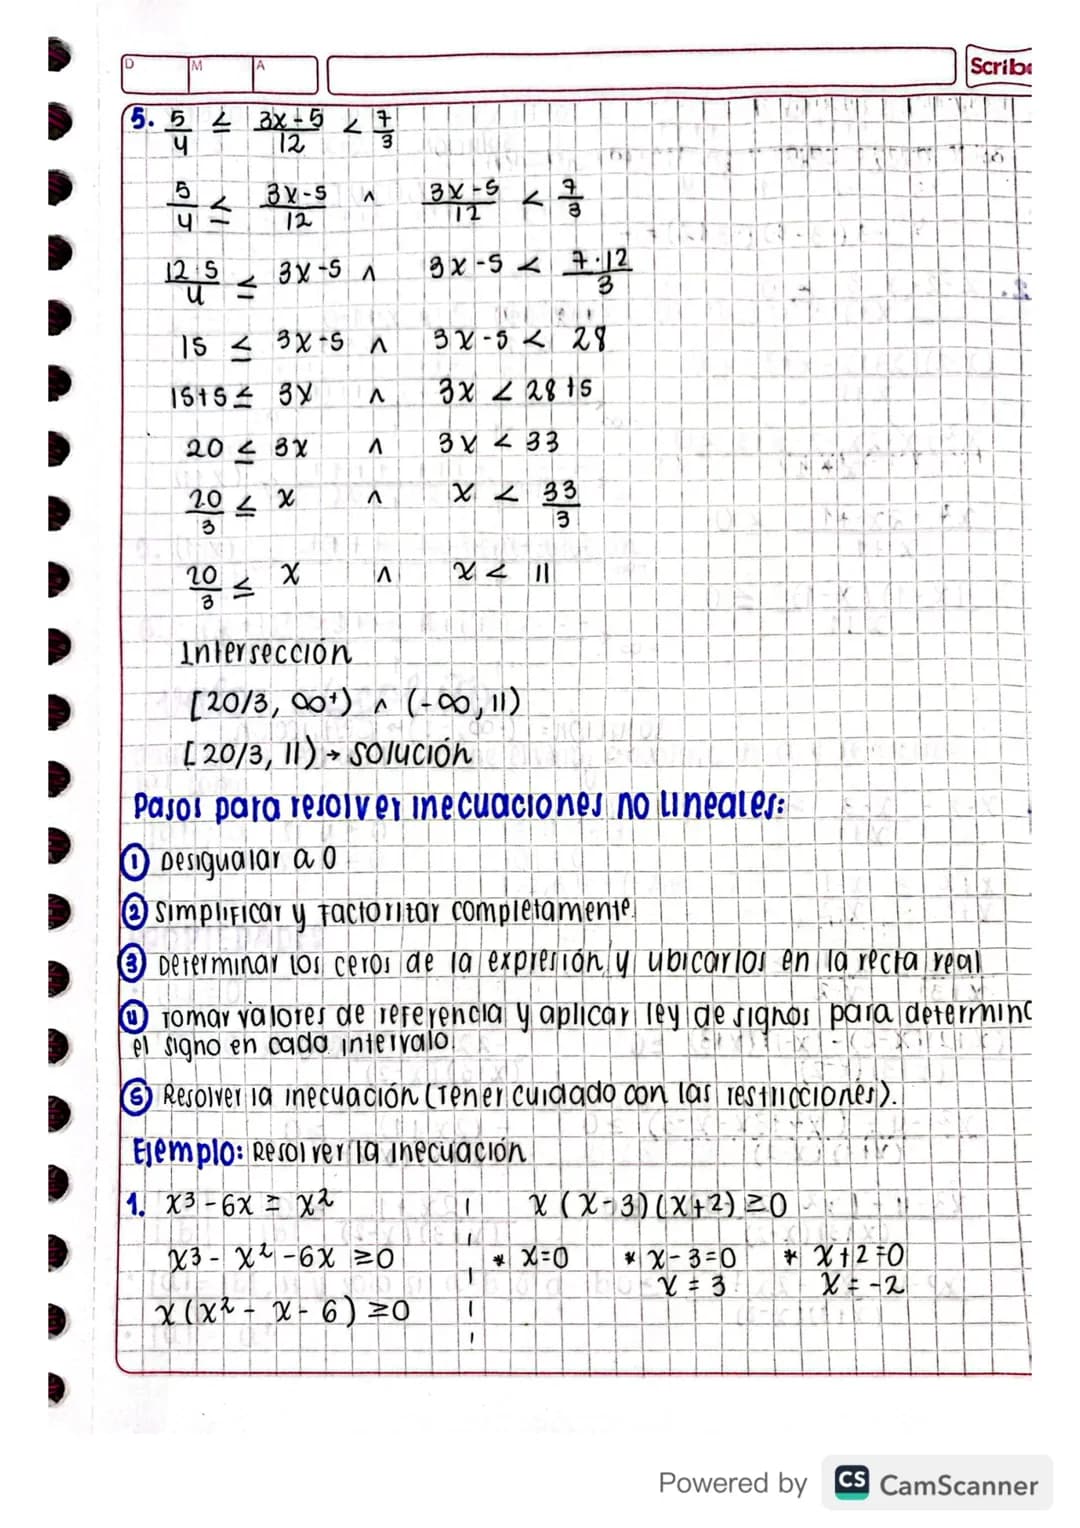 D M A Scribe
5. 5/4 ≤ 3x-5/12 < 7/3
5/4 ≤ 3x-5/12 ∧ 3x-5/12 < 7/3
12·5/4 ≤ 3x-5 ∧ 3x-5 < 7·12/3
15 ≤ 3x-5 ∧ 3x-5 < 28
15+5 ≤ 3x ∧ 3x < 28+5
20 ≤ 3x ∧ 3x < 33
20/3 ≤ x ∧ x < 33/3
20/3 ≤ x ∧ x < 11
Intersección
[20/3, ∞+) ∧ (-∞, 11)
[20/3, 11) → solución
Pasos para resolver inecuaciones no lineales:
① Desigualar a 0
② Simplificar y factorizar completamente.
③ Determinar los ceros de la expresión y ubicarlos en la recta real
④ Tomar valores de referencia y aplicar ley de signos para determina
el signo en cada intervalo.
⑤ Resolver la inecuación (Tener cuidado con las restricciones).
Ejemplo: Resolver la inecuación
1. x³ - 6x ≥ x² x (x-3)(x+2) ≥0
x³ - x² - 6x ≥0 * x=0 * x-3=0 * x+2=0
x = 3 x = -2
x (x² - x - 6) ≥0
Powered by CS CamScanner